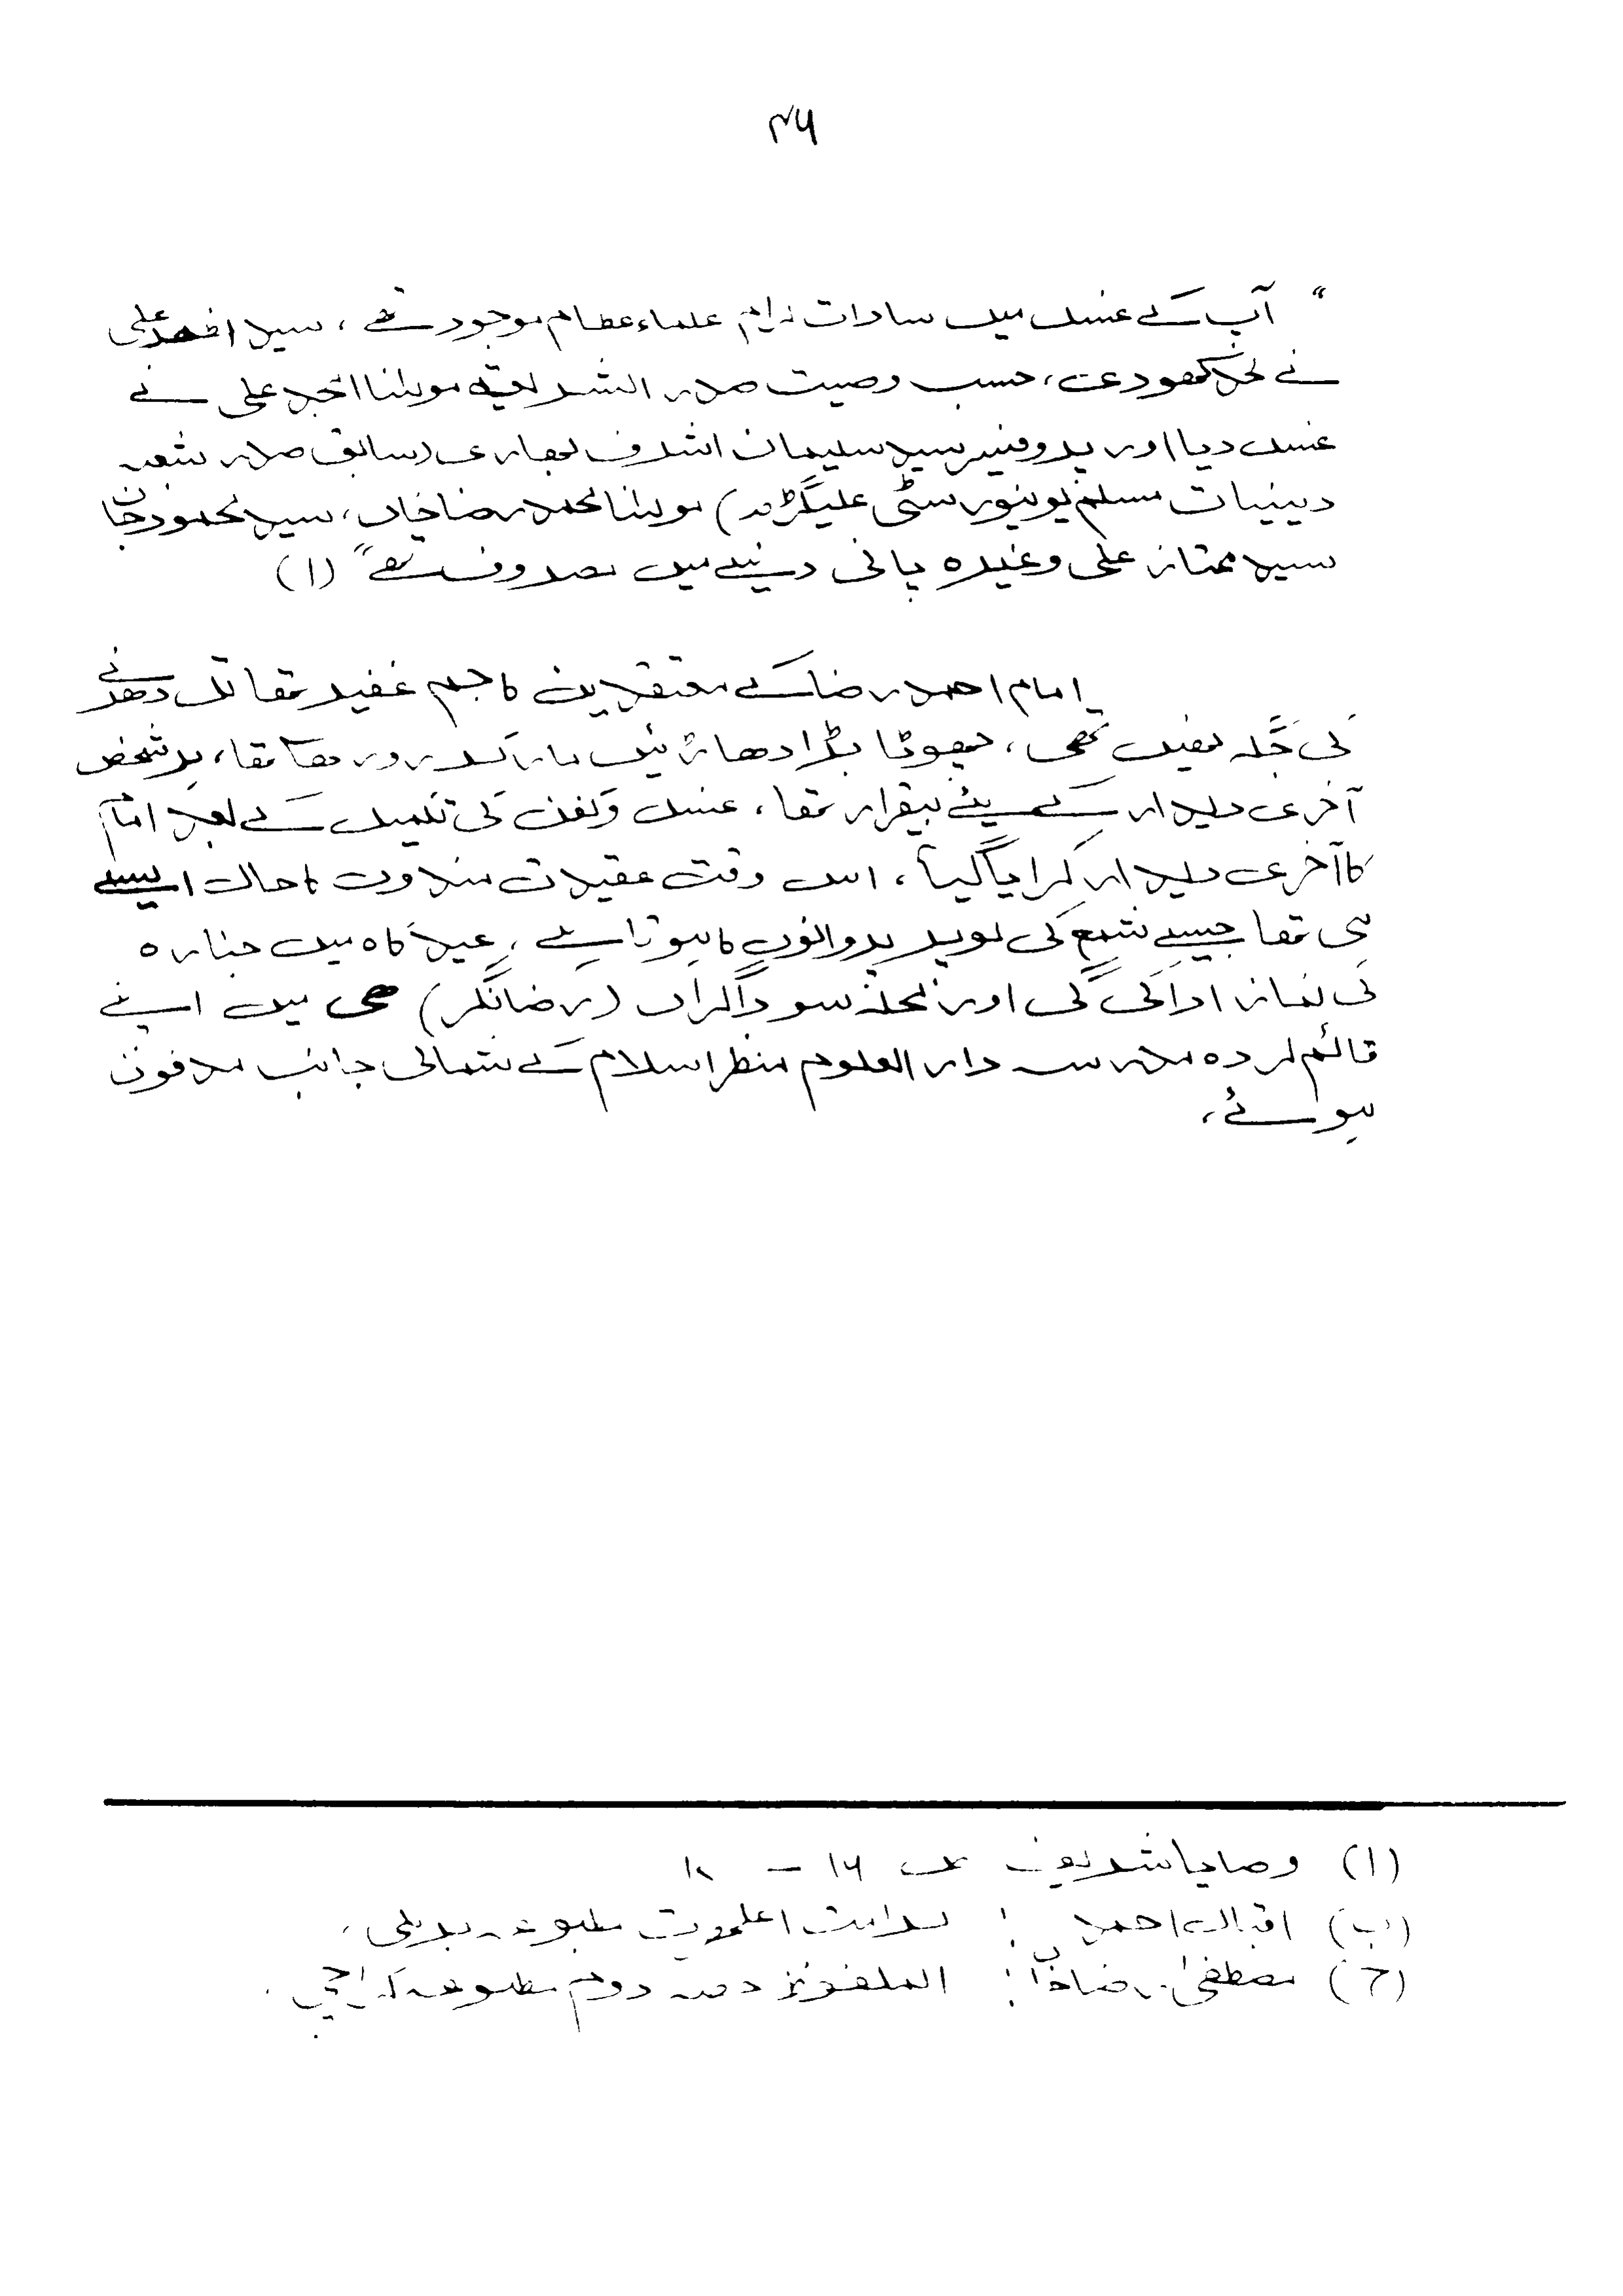 ۴۶
" آپ کے غسل میں سادات کرام علماء عظام موجود تھے ، سید اظہر علی
نے لحد کھودی، حسب وصیت صدر الشریعۃ مولٰنا امجد علی نے
غسل دیا اور پروفیسر سید سلیمان اشرف بہاری (سابق صدر شعبہ
دینیات مسلم یونیورسٹی علیگڑھ) مولٰنا محمد رضا خاں، سید محمود جان
سید ممتاز علی وغیرہ پانی دینے میں مصروف تھے " (۱)
امام احمد رضا کے معتقدین کا جم غفیر تھا تل دھرنے
کی جگہ نہیں تھی ، چھوٹا بڑا دھاڑیں مار کر رو رہا تھا، ہر شخص
آخری دیدار کے لیئے بیقرار تھا ، غسل و کفن کی تکمیل کے بعد امام
کا آخری دیدار کرایا گیا ، اس وقت عقیدت مندوں کا حال ایسے
ہی تھا جیسے شمع کی لو پر پروانوں کا ہوتا ہے ، عید گاہ میں جنازہ
کی نماز ادا کی گئی اور محلہ سوداگراں (رضا نگر) ہی میں اپنے
قائم کردہ مدرسہ دار العلوم منظر اسلام کے شمالی جانب مدفون
ہوئے ،
(۱) وصایا شریف ص ۱۶ -
(ب) اقبال احمد : کرامت اعلحضرت مطبوعہ بریلی ،
(ج) مصطفیٰ رضا خاں : الملفوظ حصہ دوم مطبوعہ کراچی .